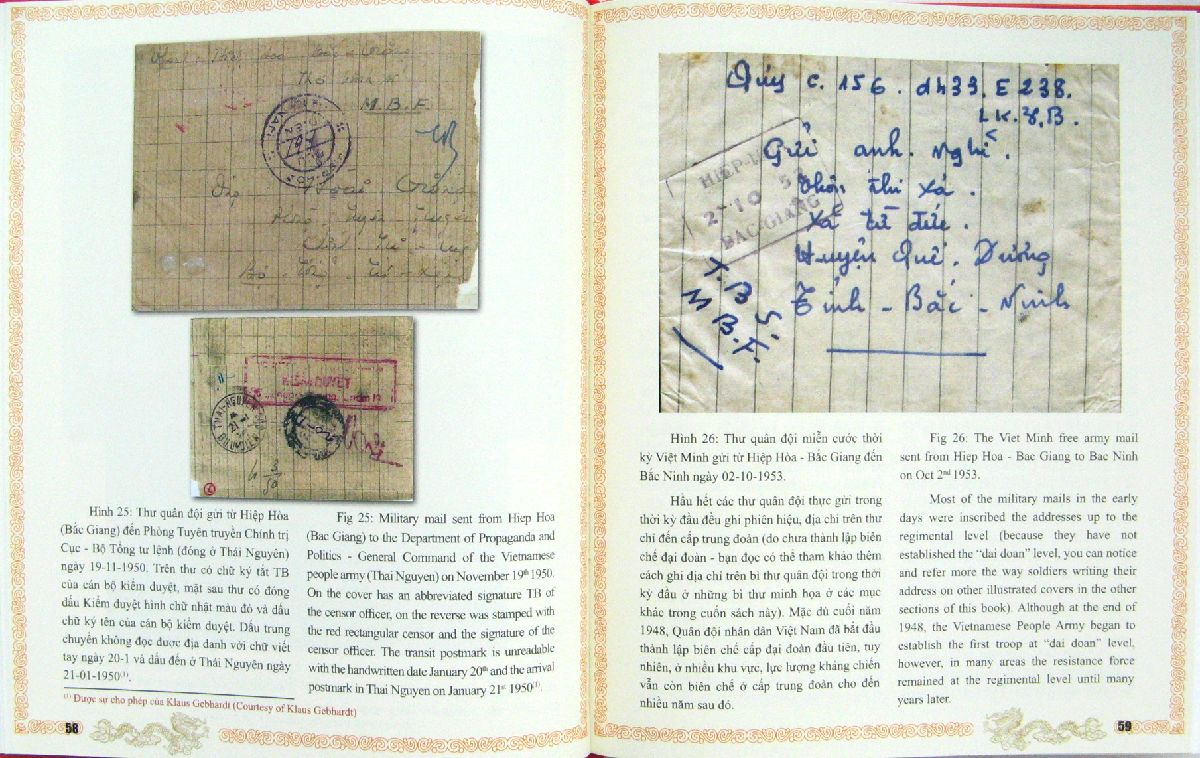 M.B.F.
KIỂM DUYỆT
Hình 25: Thư quân đội gửi từ Hiệp Hòa
(Bắc Giang) đến Phòng Tuyên truyền Chính trị
Cục - Bộ Tổng tư lệnh (đóng ở Thái Nguyên)
ngày 19-11-1950. Trên thư có chữ ký tắt TB
của cán bộ kiểm duyệt, mặt sau thư có đóng
dấu Kiểm duyệt hình chữ nhật màu đỏ và dấu
chữ ký tên của cán bộ kiểm duyệt. Dấu trung
chuyển không đọc được địa danh với chữ viết
tay ngày 20-1 và dấu đến ở Thái Nguyên ngày
21-01-1950(1).
Fig 25: Military mail sent from Hiep Hoa
(Bac Giang) to the Department of Propaganda and
Politics - General Command of the Vietnamese
people army (Thai Nguyen) on November 19th 1950.
On the cover has an abbreviated signature TB of
the censor officer, on the reverse was stamped with
the red rectangular censor and the signature of the
censor officer. The transit postmark is unreadable
with the handwritten date January 20th and the arrival
postmark in Thai Nguyen on January 21st 1950(1).
(1) Được sự cho phép của Klaus Gebhardt (Courtesy of Klaus Gebhardt)
58
Qúy c. 156. dh33. E 238.
LK.z.B.
Gửi anh. Nghĩ.
thôn thi xá.
xã từ đức.
Huyện Quế. Dương
Tỉnh - Bắc - Ninh
BAC GIANG
Hình 26: Thư quân đội miễn cước thời
kỳ Việt Minh gửi từ Hiệp Hòa - Bắc Giang đến
Bắc Ninh ngày 02-10-1953.
Hầu hết các thư quân đội thực gửi trong
thời kỳ đầu đều ghi phiên hiệu, địa chỉ trên thư
chỉ đến cấp trung đoàn (do chưa thành lập biên
chế đại đoàn - bạn đọc có thể tham khảo thêm
cách ghi địa chỉ trên bì thư quân đội trong thời
kỳ đầu ở những bì thư minh họa ở các mục
khác trong cuốn sách này). Mặc dù cuối năm
1948, Quân đội nhân dân Việt Nam đã bắt đầu
thành lập biên chế cấp đại đoàn đầu tiên, tuy
nhiên, ở nhiều khu vực, lực lượng kháng chiến
vẫn còn biên chế ở cấp trung đoàn cho đến
nhiều năm sau đó.
Fig 26: The Viet Minh free army mail
sent from Hiep Hoa - Bac Giang to Bac Ninh
on Oct 2nd 1953.
Most of the military mails in the early
days were inscribed the addresses up to the
regimental level (because they have not
established the “dai doan” level, you can notice
and refer more the way soldiers writing their
address on other illustrated covers in the other
sections of this book). Although at the end of
1948, the Vietnamese People Army began to
establish the first troop at “dai doan” level,
however, in many areas the resistance force
remained at the regimental level until many
years later.
59